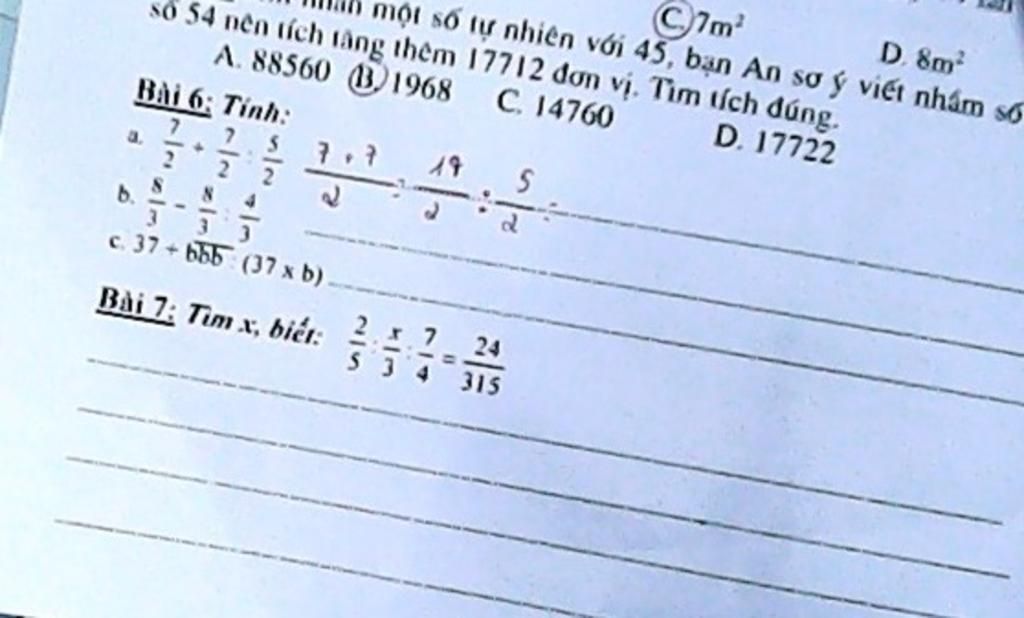 C. 7m²
D. 8m²
một số tự nhiên với 45, bạn An sơ ý viết nhầm số
số 54 nên tích tăng thêm 17712 đơn vị. Tìm tích đúng.
A. 88560 B. 1968 C. 14760 D. 17722
Bài 6: Tính:
a. 7/2 + 7/2 : 5/2 7+7/2 : 19/2 : 5/2 =
b. 8/3 - 8/3 : 4/3
c. 37 + bbb : (37 x b)
Bài 7: Tìm x, biết: 2/5 : x/3 : 7/4 = 24/315